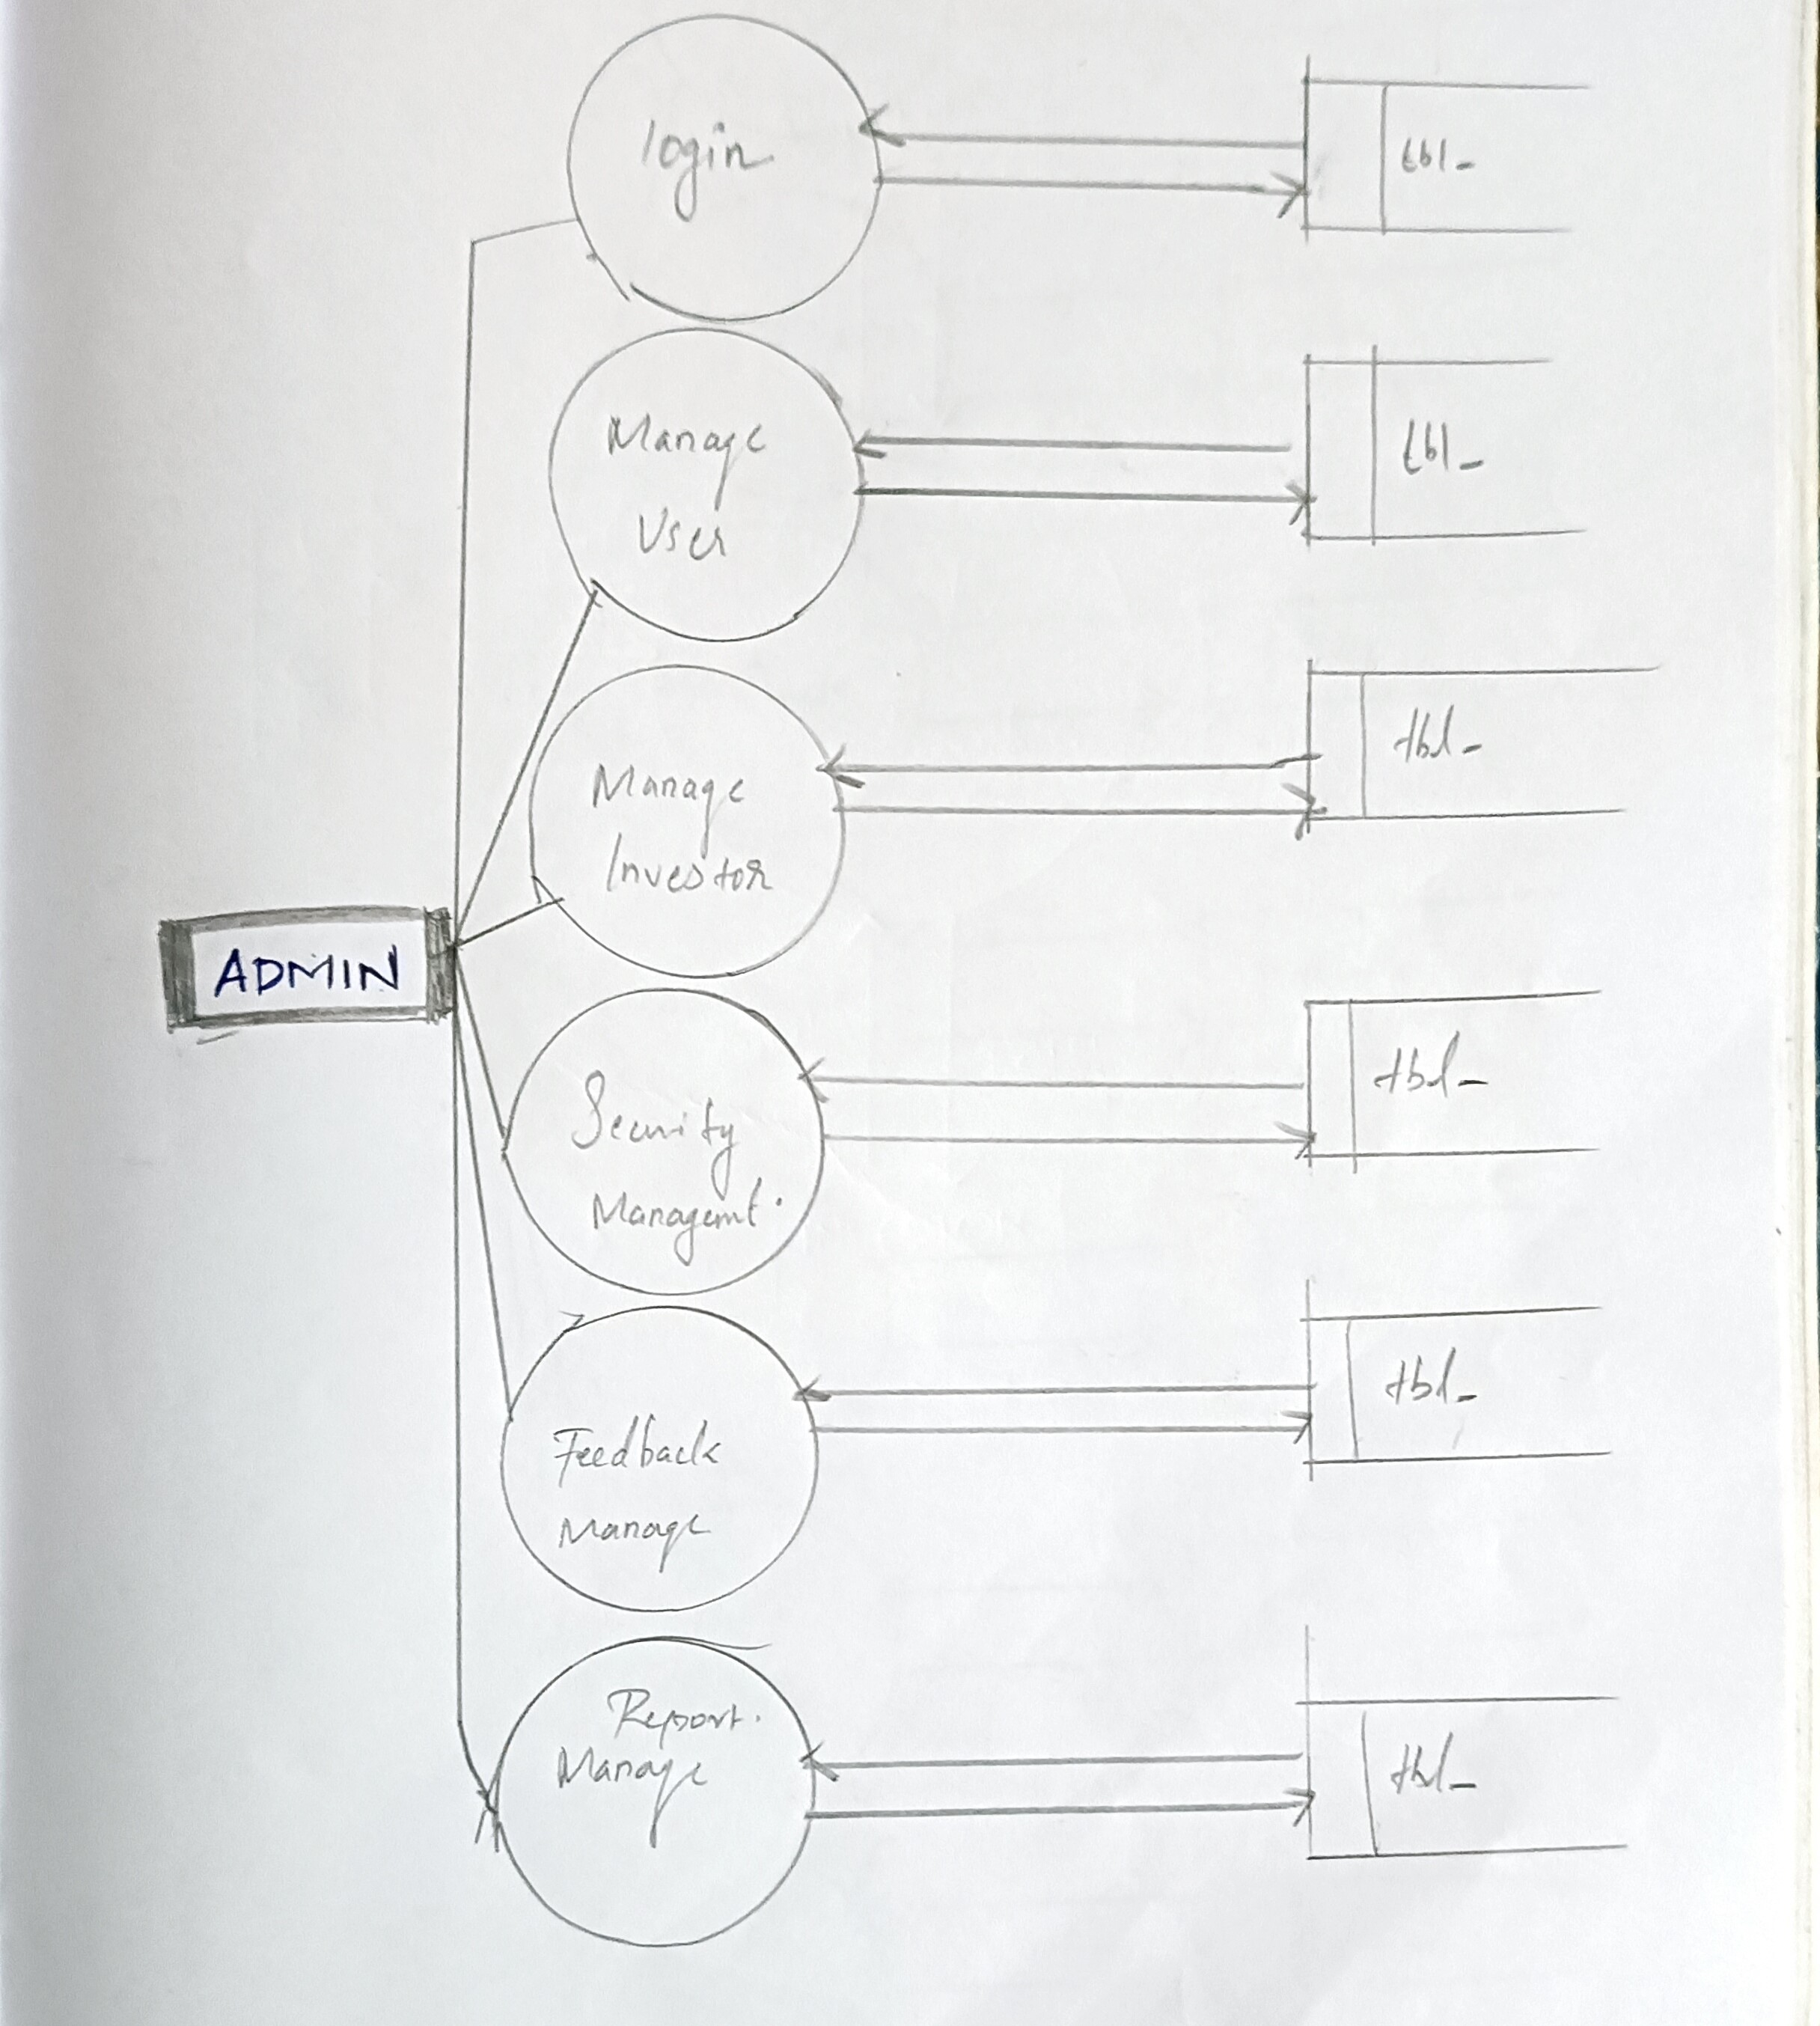 login
tbl_
Manage
User
tbl_
Manage
Investor
tbl_
ADMIN
Security
Managemt.
tbl_
Feedback
Manage
tbl_
Report.
Manage
tbl_